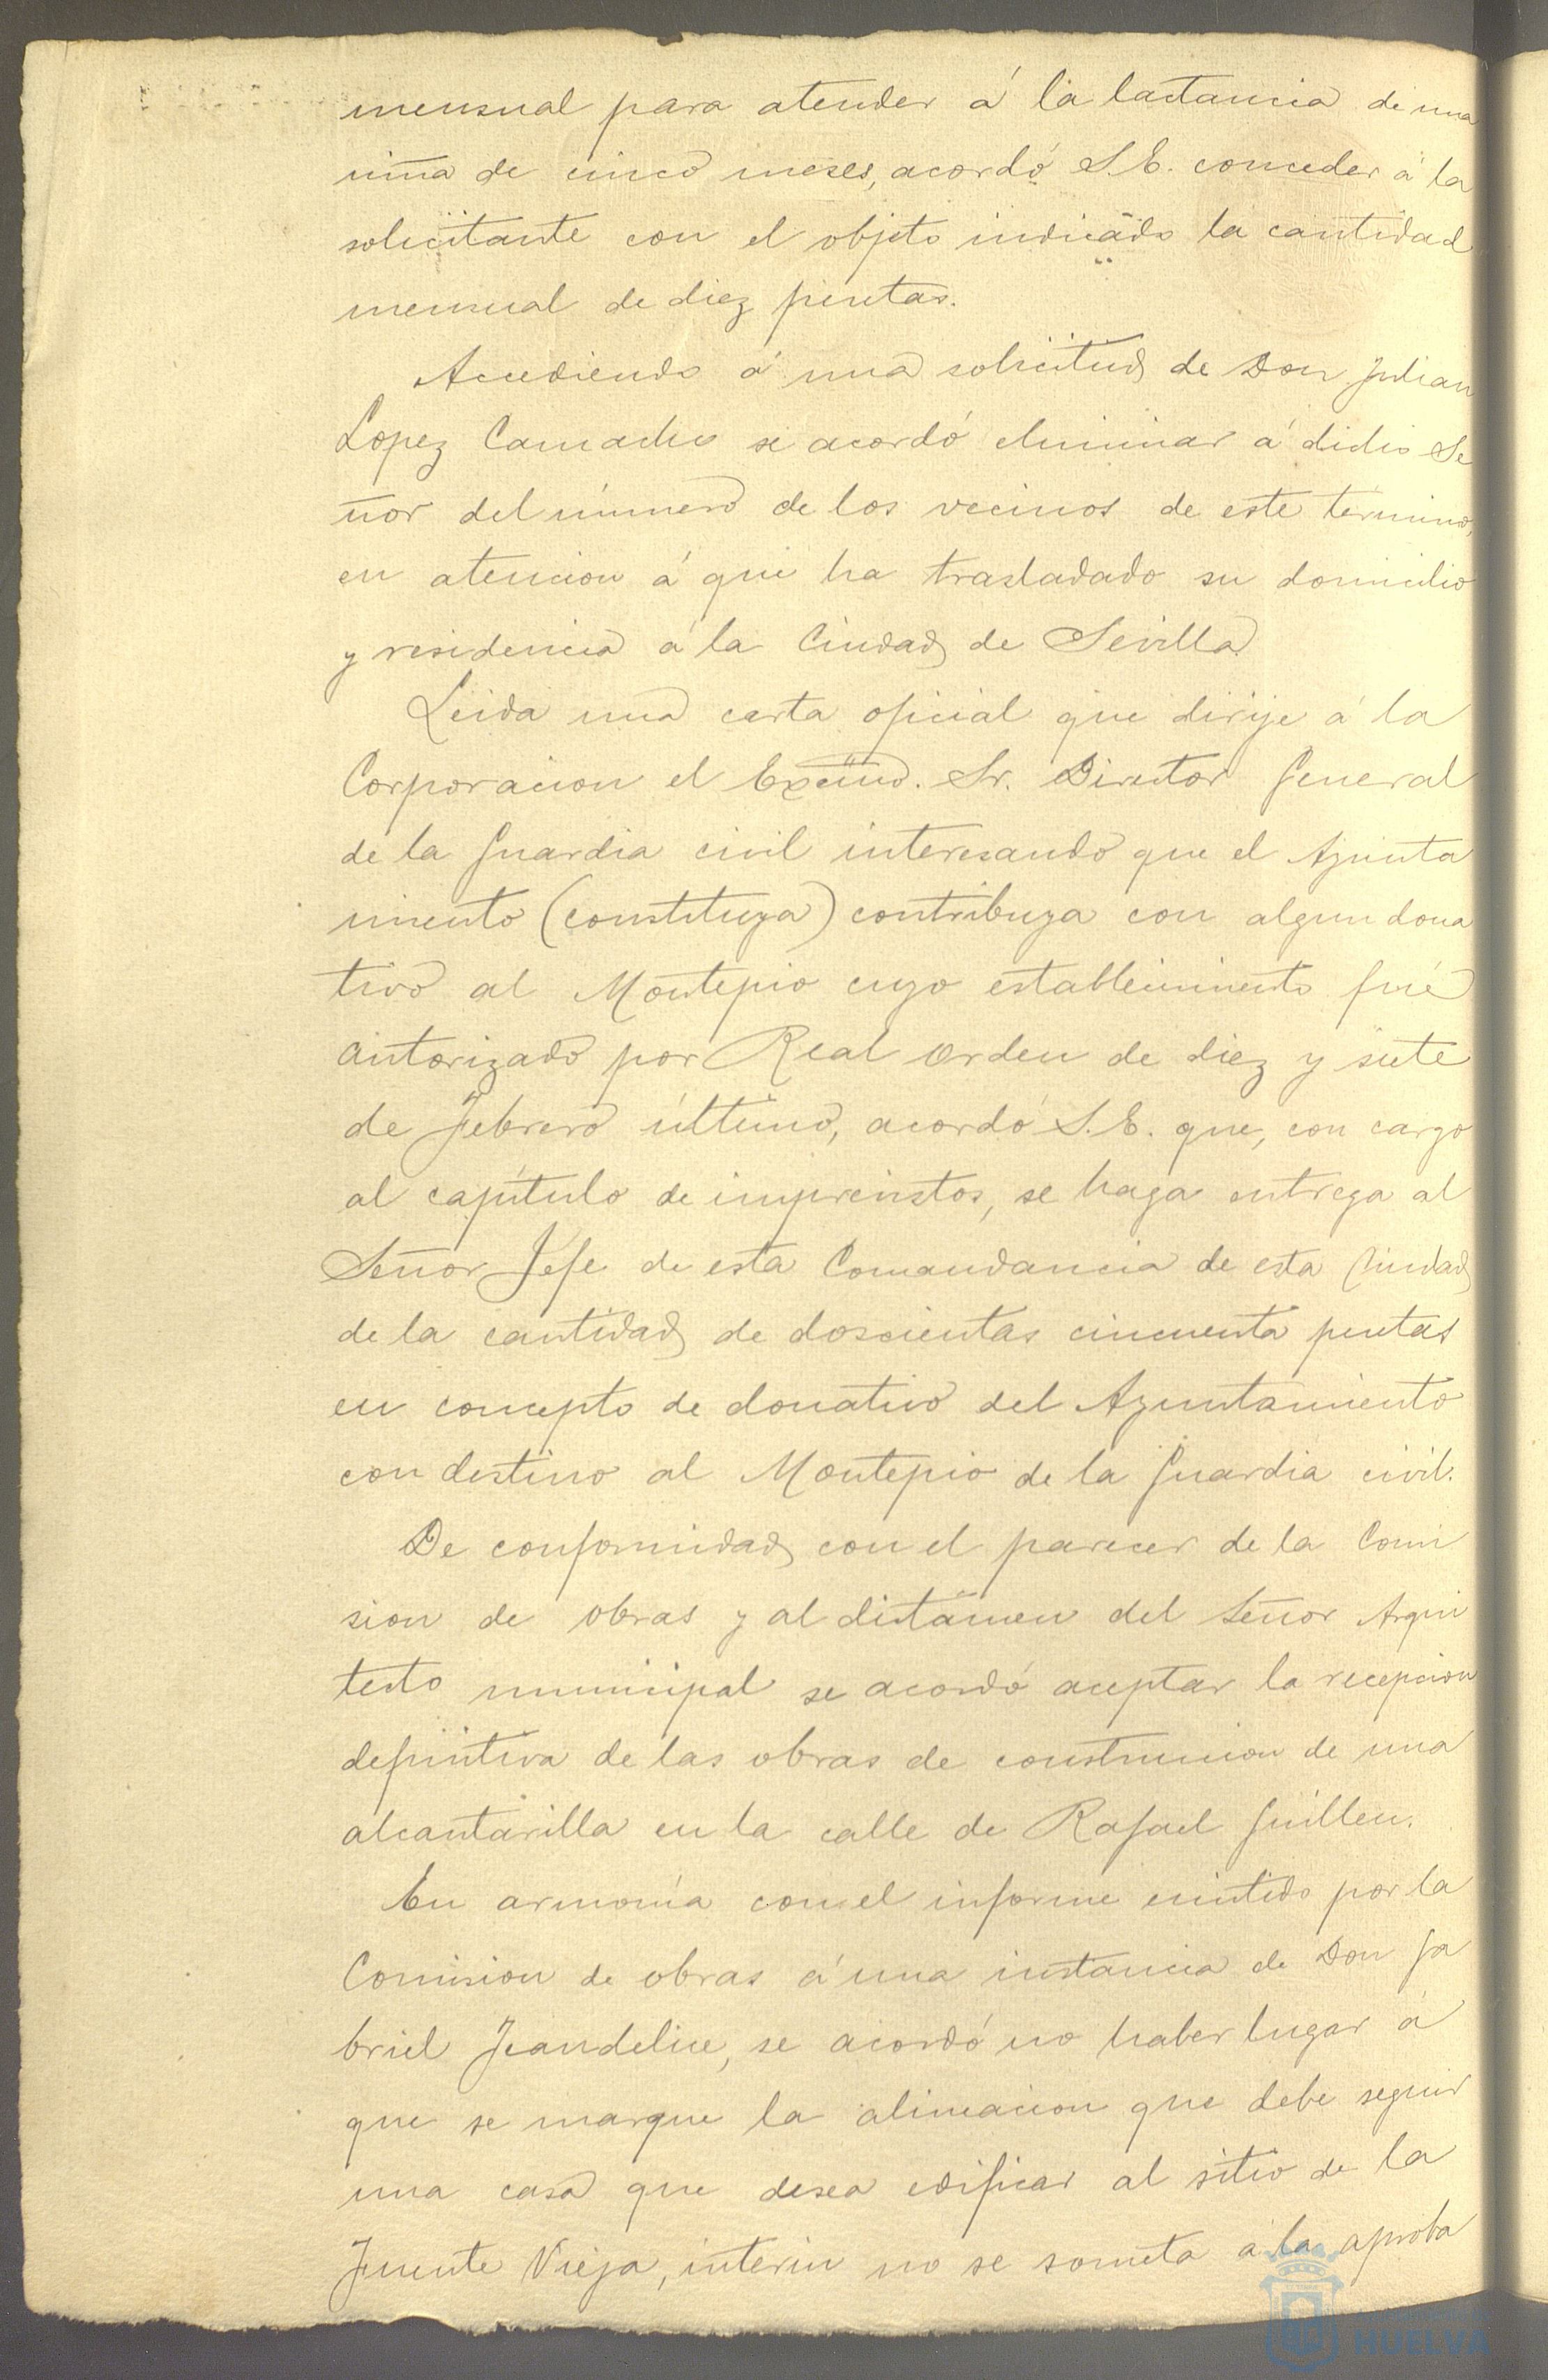 mensual para atender á la lactancia de una
niña de cinco meses, acordó S.E. conceder á la
solicitante con el objeto indicado la cantidad
mensual de diez pesetas.
Accediendo á una solicitud de Don Julian
Lopez Camacho se acordó eliminar á dicho Se
ñor del número de los vecinos de este término,
en atencion á que ha trasladado su domicilio
y residencia á la Ciudad de Sevilla
Leida una carta oficial que dirije á la
Corporacion el Excmo. Sr. Director General
de la Guardia civil interesando que el Ayunta
miento (constituya) contribuya con algun dona
tivo al Montepio cuyo establecimiento fué
autorizado por Real orden de diez y siete
de Febrero último, acordó S.E. que, con cargo
al capítulo de imprevistos, se haga entrega al
Señor Jefe de esta Comandancia de esta Ciudad
de la cantidad de doscientas cincuenta pesetas
en concepto de donativo del Ayuntamiento
con destino al Montepio de la Guardia civil.
De conformidad con el parecer de la Comi
sion de obras y al dictámen del Señor Arqui
tecto municipal se acordó aceptar la recepcion
definitiva de las obras de construccion de una
alcantarilla en la calle de Rafael Guillen.
En armonía con el informe emitido por la
Comision de obras á una instancia de Don Ga
briel Jeandelice, se acordó no haber lugar á
que se marque la alineacion que debe seguir
una casa que desea edificar al sitio de la
Fuente Vieja, interin no se someta á la aproba
HUELVA